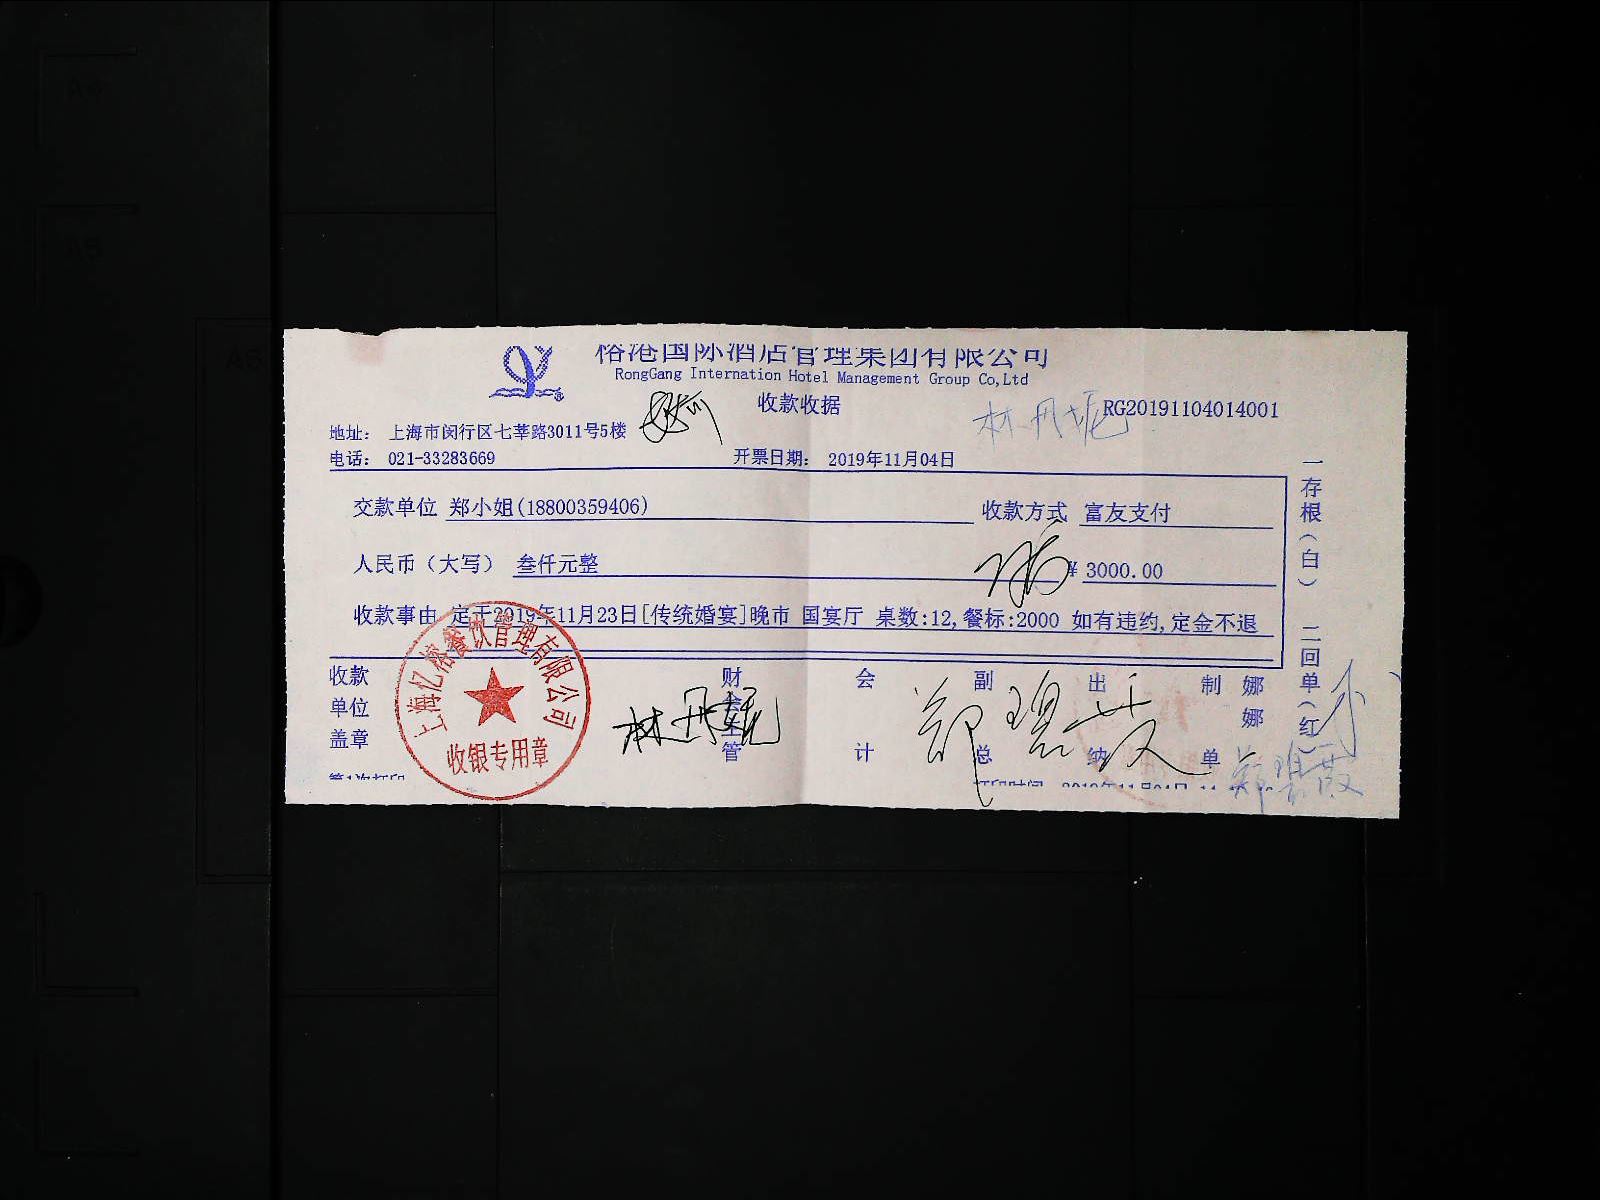 榕港国际酒店管理集团有限公司
RongGang Internation Hotel Management Group Co,Ltd
收款收据
林丹妮
RG20191104014001
地址： 上海市闵行区七莘路3011号5楼
电话： 021-33283669
开票日期： 2019年11月04日
交款单位 郑小姐(18800359406)
收款方式 富友支付
人民币（大写） 叁仟元整
¥ 3000.00
收款事由 定于2019年11月23日[传统婚宴]晚市 国宴厅 桌数:12,餐标:2000 如有违约,定金不退
一存根(白) 二回单(红)
收款单位盖章
上海亿榕餐饮管理有限公司
收银专用章
财会主管
林丹妮
会计
副总
出纳
制单
娜娜
第1次打印
打印时间 2019年11月04日